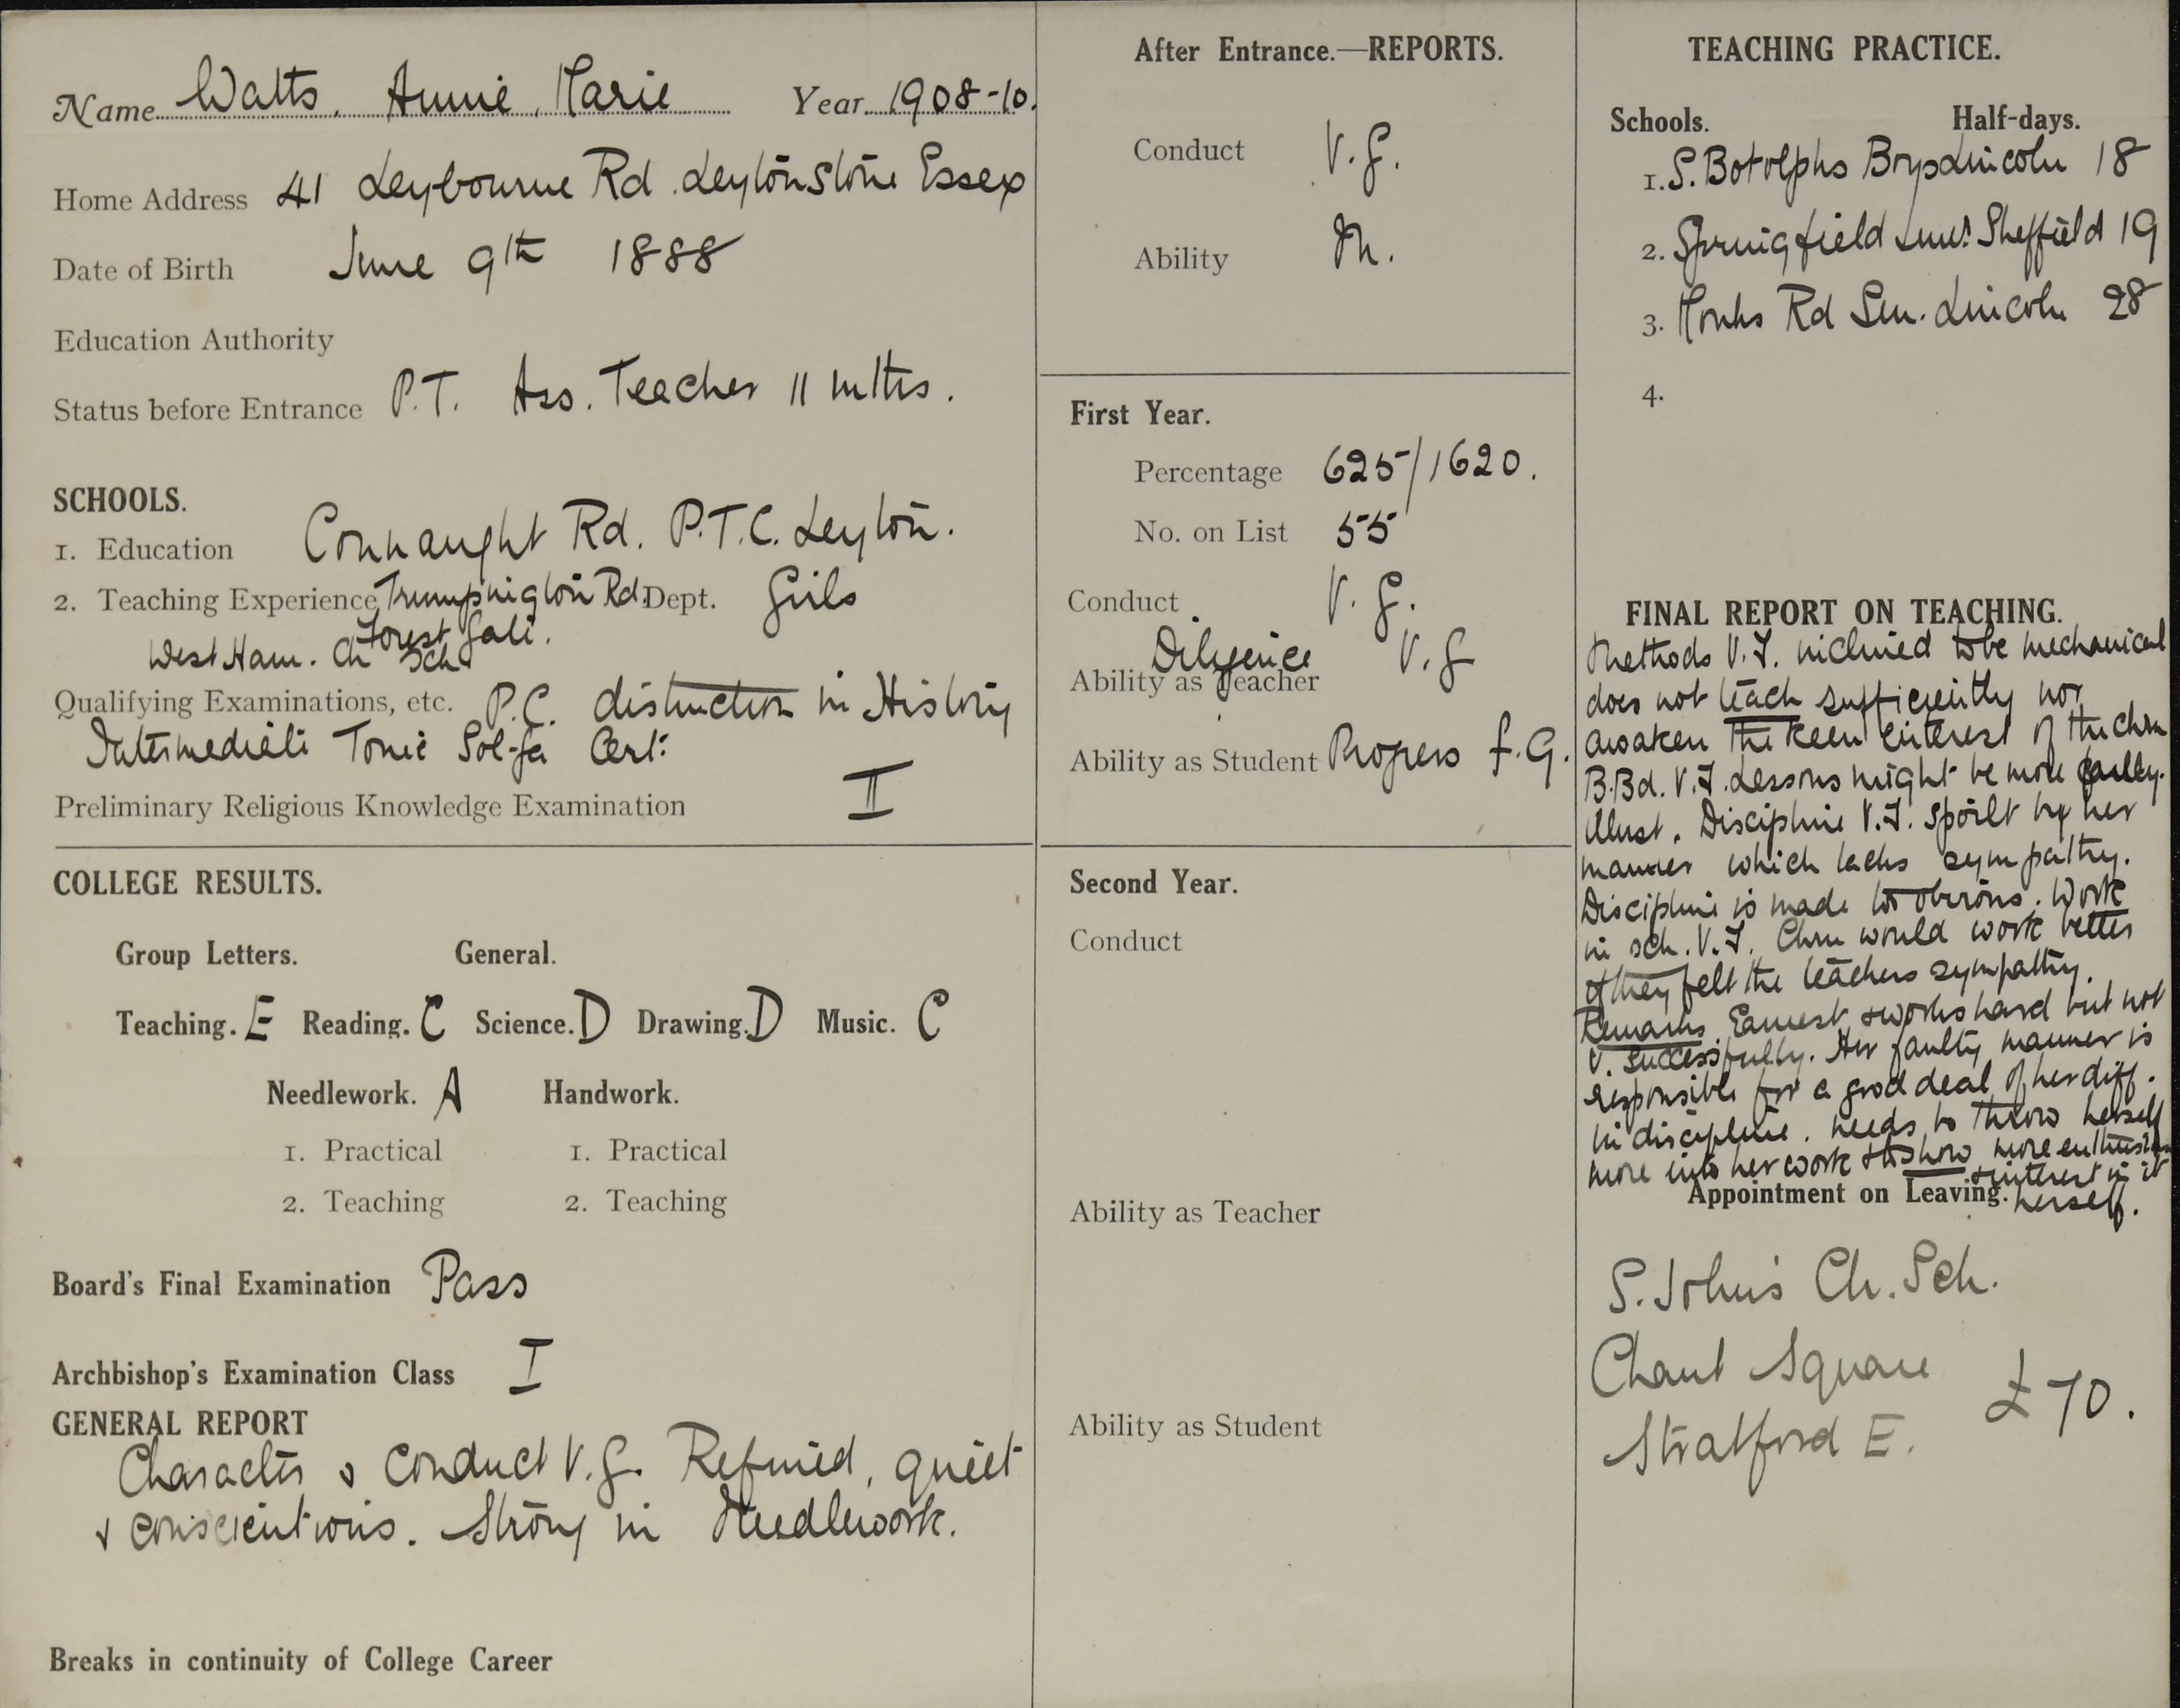 Name Watts, Annie, Marie Year 1908-10.
Home Address 41 Leybourne Rd. Leytonstone Essex
Date of Birth June 9th 1888
Education Authority
Status before Entrance P.T. Ass. Teacher 11 mths.
SCHOOLS.
1. Education Connaught Rd. P.T.C. Leyton.
2. Teaching Experience Trumpington Rd. Dept. Girls
Forest Gate.
West Ham. Ch Sch
Qualifying Examinations, etc. P.C. distinction in History
Intermediate Tonic Sol-fa Cert:
Preliminary Religious Knowledge Examination II
COLLEGE RESULTS.
Group Letters. General.
Teaching. E Reading. C Science. D Drawing. D Music. C
Needlework. A Handwork.
1. Practical 1. Practical
2. Teaching 2. Teaching
Board's Final Examination Pass
Archbishop's Examination Class I
GENERAL REPORT
Character & conduct V.G. Refined, quiet
& conscientious. Strong in Needlework.
Breaks in continuity of College Career
After Entrance.—REPORTS.
Conduct V.G.
Ability M.
First Year.
Percentage 625/1620.
No. on List 55
Conduct V.G.
Diligence V.G
Ability as Teacher
Ability as Student Progress f.G.
Second Year.
Conduct
Ability as Teacher
Ability as Student
TEACHING PRACTICE.
Schools. Half-days.
1. S. Botolphs Boys Lincoln 18
2. Springfield Sheffield 19
3. Monks Rd Sen. Lincoln 28
4.
FINAL REPORT ON TEACHING.
Methods V.F. inclined to be mechanical
does not teach sufficiently nor
awaken the keen interest of the chn
B.Bd. V.F. Lessons might be more
illust. Discipline V.F. spoilt by her
manner which lacks sympathy.
Discipline is made too obvious. Work
in sch. V.F. Chn would work better
if they felt the teachers sympathy.
Remarks Earnest & works hard but not
v. successfully. Her faulty manner is
responsible for a good deal of her diff.
in discipline. needs to throw herself
more into her work & to show more enthusiasm
& interest in it
herself.
Appointment on Leaving.
S. John's Ch. Sch.
Chant Square
£70.
Stratford E.